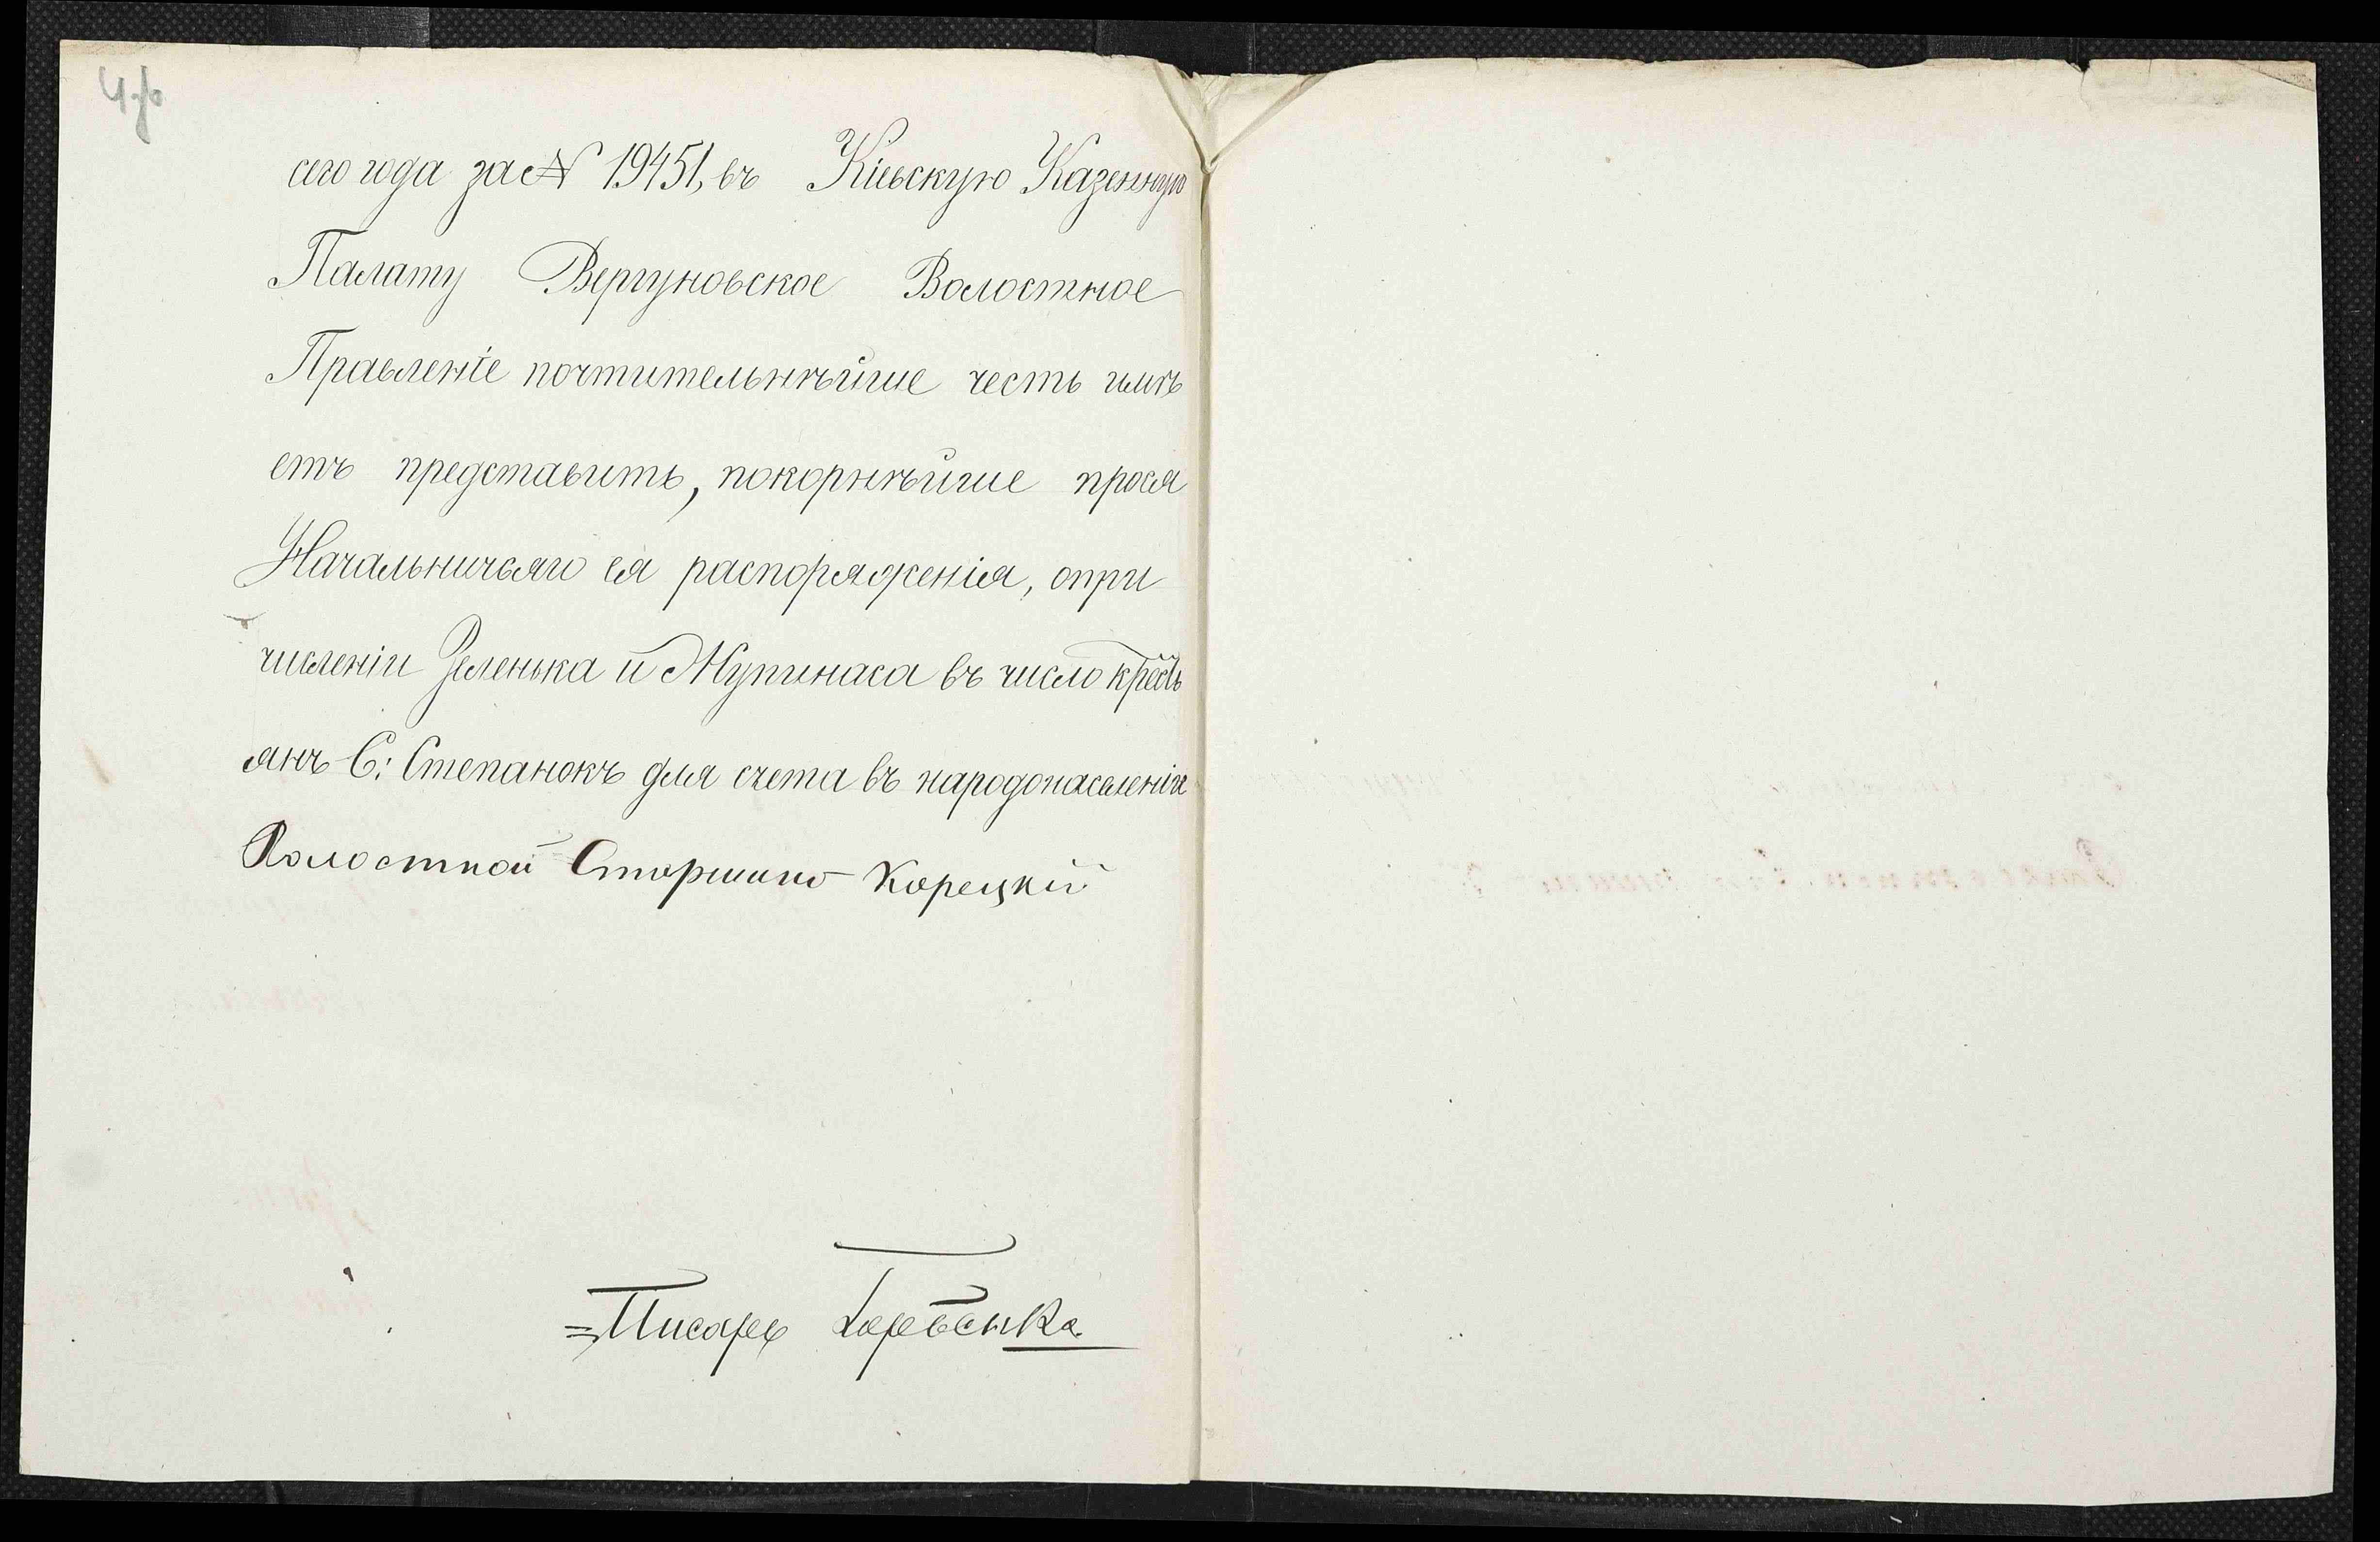 сего года за № 19451, въ Кіевскую Казенную
Палату Вергуновское Волостное
Правленіе почтительнѣйше честь имѣ
етъ представить, покорнѣйше прося
Начальничьяго ея распоряженія, опри
численіи Зеленька и Жупинаса въ число кресть
янъ С: Степанокъ для счета въ народонаселеніи
Волостной Старшина Корецкій
Писарь